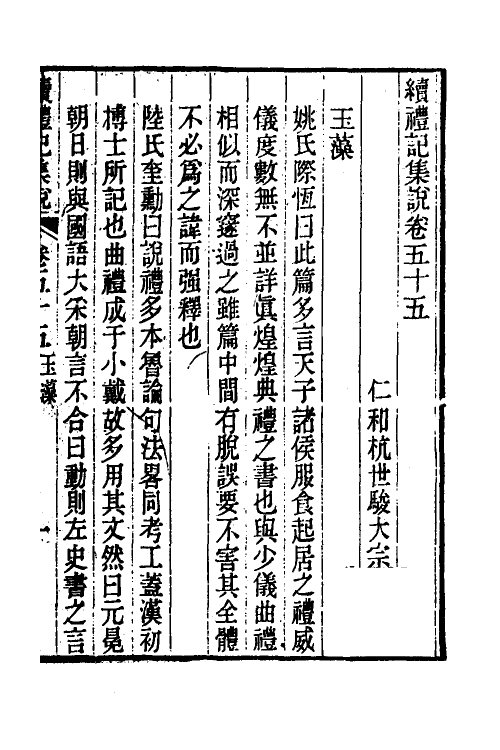 續禮記集說卷五十五
仁和杭世駿大宗
玉藻
姚氏際恆曰此篇多言天子諸侯服食起居之禮威
儀度數無不並詳眞煌煌典禮之書也與少儀曲禮
相似而深邃過之雖篇中間有脫誤要不害其全體
不必爲之諱而强釋也
陸氏奎勳曰說禮多本魯論句法畧同考工蓋漢初
博士所記也曲禮成于小戴故多用其文然曰元冕
朝日則與國語大采朝言不合曰動則左史書之言
續禮記集說 卷五十五 玉藻 一